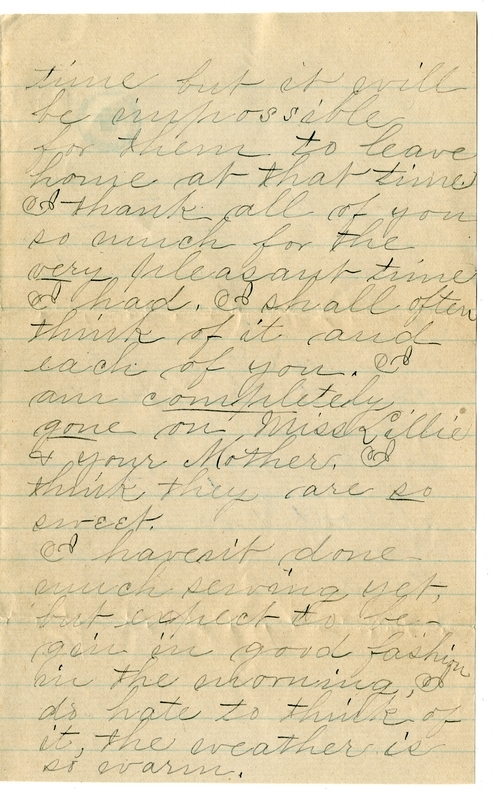 time but it will
be impossible
for them to leave
home at that time
I thank all of you
so much for the
very pleasant time
I had. I shall often
think of it and
each of you. I
am completely
gone on Miss Lillie
& your Mother. I
think they are so
sweet.
I havesn't done
much sewing yet,
but expect to be-
gin in good fashion
in the morning, I
do hate to think of
it, the weather is
so warm.